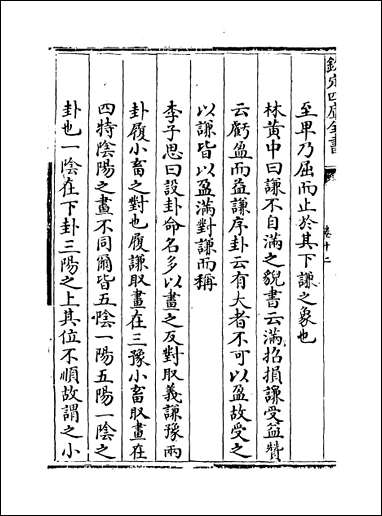 欽定四庫全書
卷十二
至卑乃屈而止於其下謙之象也
林黄中曰謙不自滿之貌書云滿招損謙受益贊
云虧盈而益謙序卦云有大者不可以盈故受之
以謙皆以盈滿對謙而稱
李子思曰設卦命名多以畫之反對取義謙豫兩
卦履小畜之對也履謙取畫在三豫小畜取畫在
四特陰陽之畫不同爾皆五陰一陽五陽一陰之
卦也一陰在下卦三陽之上其位不順故謂之小